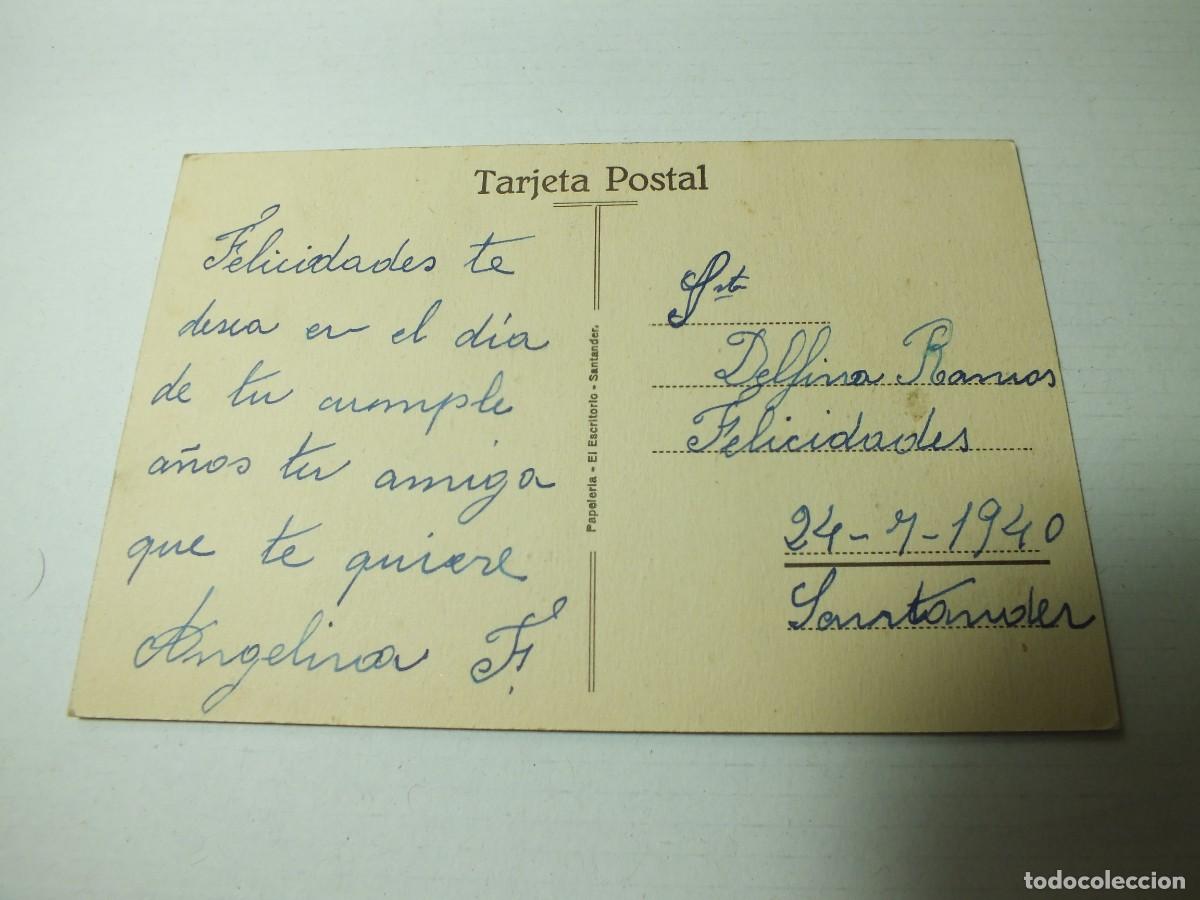 Tarjeta Postal
Felicidades te
desea en el día
de tu cumple
años tu amiga
que te quiere
Angelina F.
Papelería - El Escritorio - Santander.
Srta
Delfina Ramos
Felicidades
24-7-1940
Santander
todocoleccion